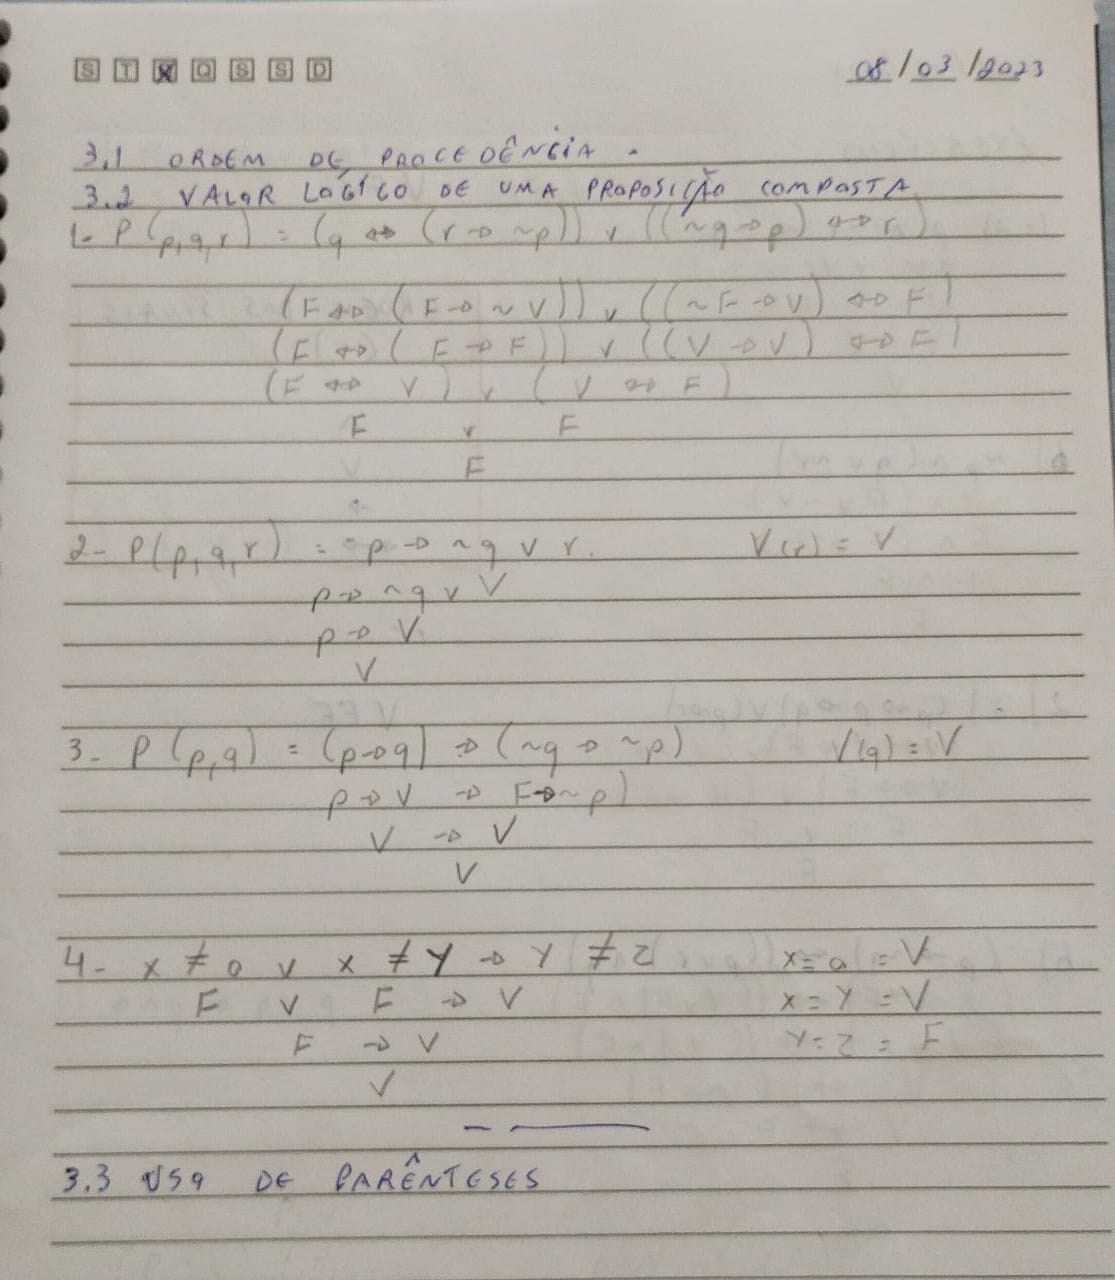 S T X Q S S D 08/03/2023
3.1 ORDEM DE PROCEDÊNCIA.
3.2 VALOR LÓGICO DE UMA PROPOSIÇÃO COMPOSTA
1- P(p,q,r) = (q ↔ (r → ~p)) v ((~q → p) ↔ r)
(F ↔ (F → ~V)) v ((~F → V) ↔ F)
(F ↔ (F → F)) v ((V → V) ↔ F)
(F ↔ V) v (V ↔ F)
F v F
F
2- P(p,q,r) = p → ~q v r. V(r) = V
p → ~q v V
p → V
V
3- P(p,q) = (p → q) → (~q → ~p) V(q) = V
p → V → F → ~p)
V → V
V
4- x ≠ 0 v x ≠ y → y ≠ z x = 0 = V
F v F → V x = y = V
F → V y = z = F
V
3.3 USO DE PARÊNTESES